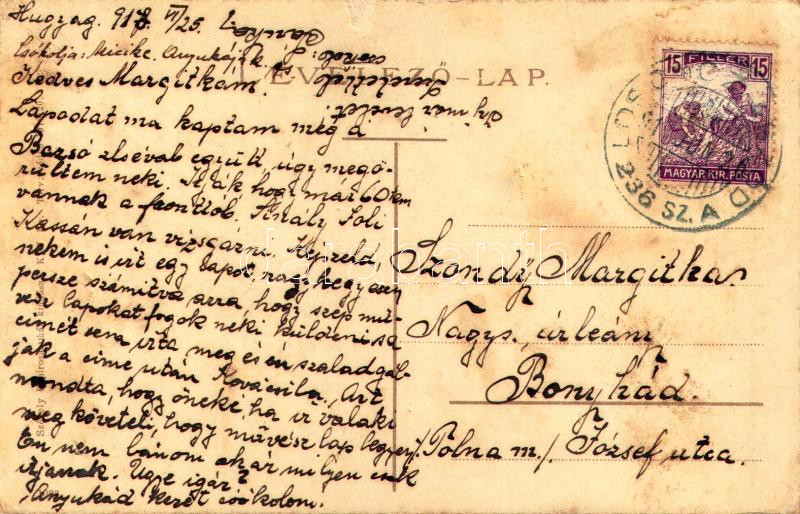 Hugyag. 918 VI/25.
Csókolja: Micike. Anyukájok
LEVELEZŐ-LAP.
Kedves Margitkám.
Lapodat ma kaptam meg a
Bozsó Elsével együtt, úgy megö-
rültem neki. Irják hogy már 60 km
vannak a fronttól. Király Joli
Kassán van vizsgázni. Képzeld
nekem is irt egy lapot nagy kegyesen
persze számitva arra, hogy szép mű-
vész lapokat fogok neki küldeni s a
cimét sem irta meg és én szaladgál-
jak a cime után Kovácsiba. Azt
mondta, hogy őneki ha ir valaki
meg követeli, hogy művész lap legyen
Én nem bánom akár milyen csak
irjanak. Ugye igaz?
Anyukád kezét csókolom.
15 FILLÉR 15
MAGYAR KIR. POSTA
236 SZ. A
Szondy Margitka
Nagys. úrleány
Bonyhád.
/Tolna m./ József utca.
darabanth